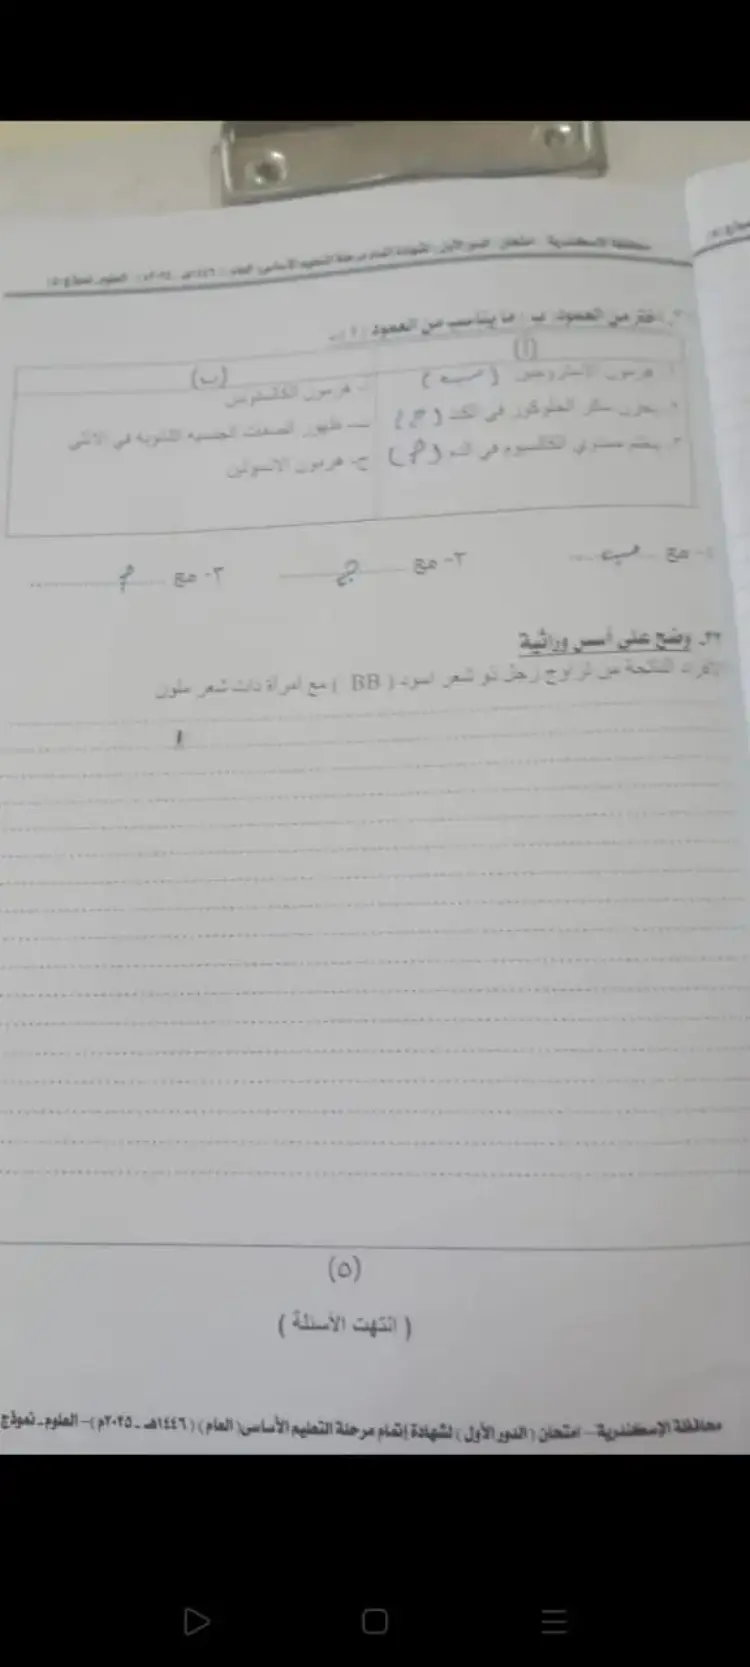 محافظة الإسكندرية - امتحان (الدور الأول) لشهادة إتمام مرحلة التعليم الأساسي (العام) (١٤٤٦هـ - ٢٠٢٥م) - العلوم - نموذج (٥)
اختر من العمود (ب) ما يناسب من العمود (أ):
(أ) (ب)
١. هرمون الاستروجين (ب) أ- هرمون الكالسيتونين
٢. يخزن سكر الجلوكوز في الكبد (ج) ب- ظهور الصفات الجنسية الثانوية في الأنثى
٣. ينظم مستوي الكالسيوم في الدم (أ) ج- هرمون الانسولين
١- مع ب ٢- مع ج ٣- مع أ
٣٢. وضح على أسس وراثية
الأفراد الناتجة من تزاوج رجل ذو شعر اسود (BB) مع امرأة ذات شعر ملون
(٥)
(انتهت الأسئلة)
محافظة الإسكندرية - امتحان (الدور الأول) لشهادة إتمام مرحلة التعليم الأساسي (العام) (١٤٤٦هـ - ٢٠٢٥م) - العلوم - نموذج